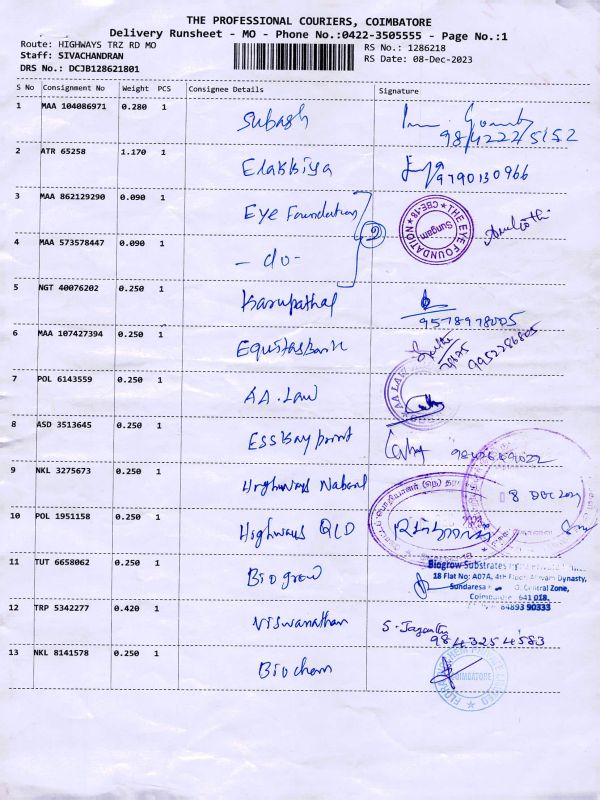 THE PROFESSIONAL COURIERS, COIMBATORE
Delivery Runsheet - MO - Phone No.:0422-3505555 - Page No.:1
Route: HIGHWAYS TRZ RD MO
RS No.: 1286218
Staff: SIVACHANDRAN
RS Date: 08-Dec-2023
DRS No.: DCJB128621801
S No Consignment No Weight PCS Consignee Details Signature
1 MAA 104086971 0.280 1 Subash
2 ATR 65258 1.170 1 Elakkiya 9790130966
3 MAA 862129290 0.090 1 Eye Foundation THE EYE FOUNDATION CBE-18 Sungam
4 MAA 573578447 0.090 1 -do- 2
5 NGT 40076202 0.250 1 Karupathal 9578978005
6 MAA 107427394 0.250 1 Equitas Bank 9952286805
7 POL 6143559 0.250 1 AA. Law
8 ASD 3513645 0.250 1 EssKay point
9 NKL 3275673 0.250 1 Highways Nabard 8 DEC 2023
10 POL 1951158 0.250 1 Highways QLD
11 TUT 6658062 0.250 1 Biogrow
Biogrow Substrates
18 Flat No: A07A, 4th Floor, Dynasty,
Central Zone,
641 018.
84893 90333
12 TRP 5342277 0.420 1 Viswanathan S. Jayanthy
9843254583
13 NKL 8141578 0.250 1 Biochem COIMBATORE